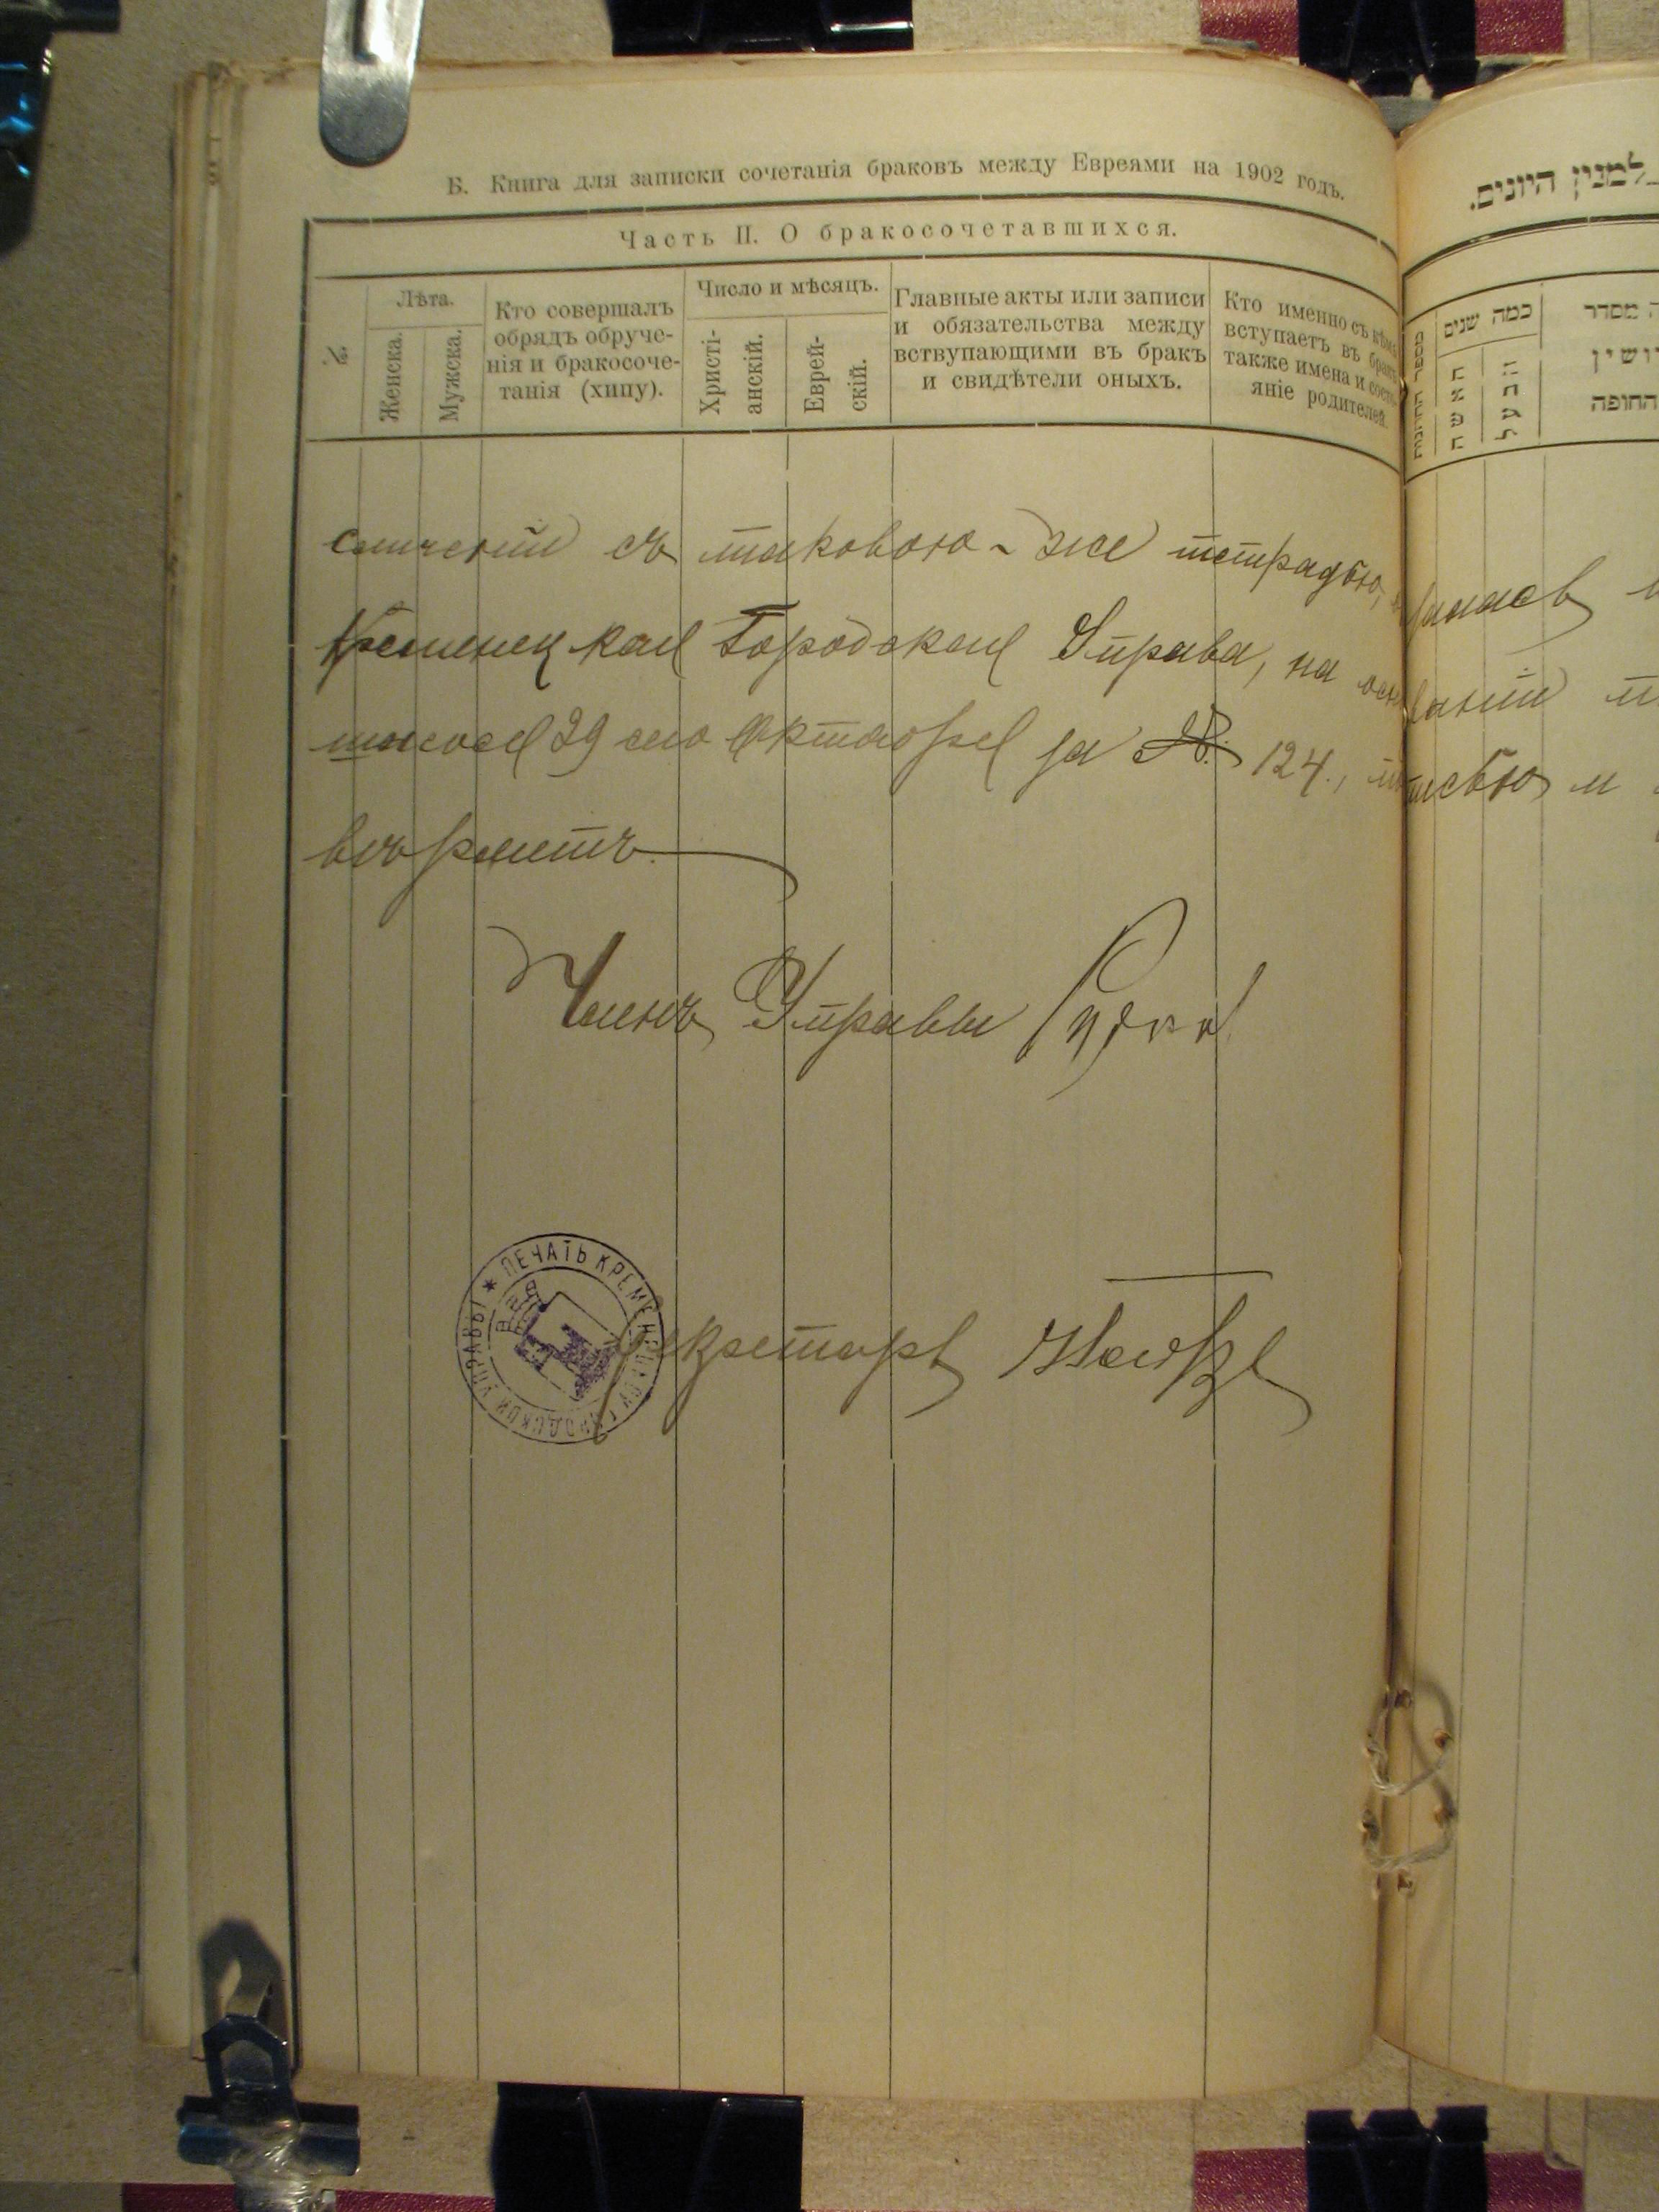 Б. Книга для записки сочетанія браковъ между Евреями на 1902 годъ.
למנין היונים.
Часть II. О бракосочетавшихся.
№.
Лѣта.
Женска.
Мужска.
Кто совершалъ
обрядъ обруче-
нія и бракосоче-
танія (хипу).
Число и мѣсяцъ.
Христі-
анскій.
Еврей-
скій.
Главные акты или записи
и обязательства между
вствупающими въ бракъ
и свидѣтели оныхъ.
Кто именно съ кѣмъ
вступаетъ въ бракъ
также имена и состо-
яніе родителей.
כמה שנים
האשה
הבעל
מסדר
החופה
сличеніи съ таковою-же тетрадью,
Кременецкая Городская Управа, на основаніи
29 сего Октября за № 124., подписью и
вѣряетъ.
Членъ Управы
Секретарь
ПЕЧАТЬ КРЕМЕНЕЦКОЙ ГОРОДСКОЙ УПРАВЫ